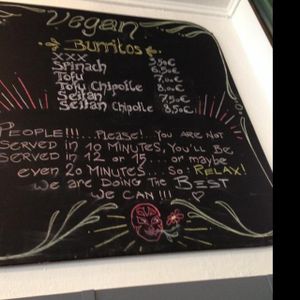 Vegan
Burritos
XXX 3,50€
Spinach 6,50€
Tofu 7,00€
Tofu Chipotle 8,00€
Seitan 7,50€
Seitan Chipotle 8,50€
PEOPLE!!!... Please!.. You are not
served in 10 minutes, you'll be
served in 12 or 15... or maybe
even 20 minutes... So: RELAX!
We are doing the BEST
we can!!!